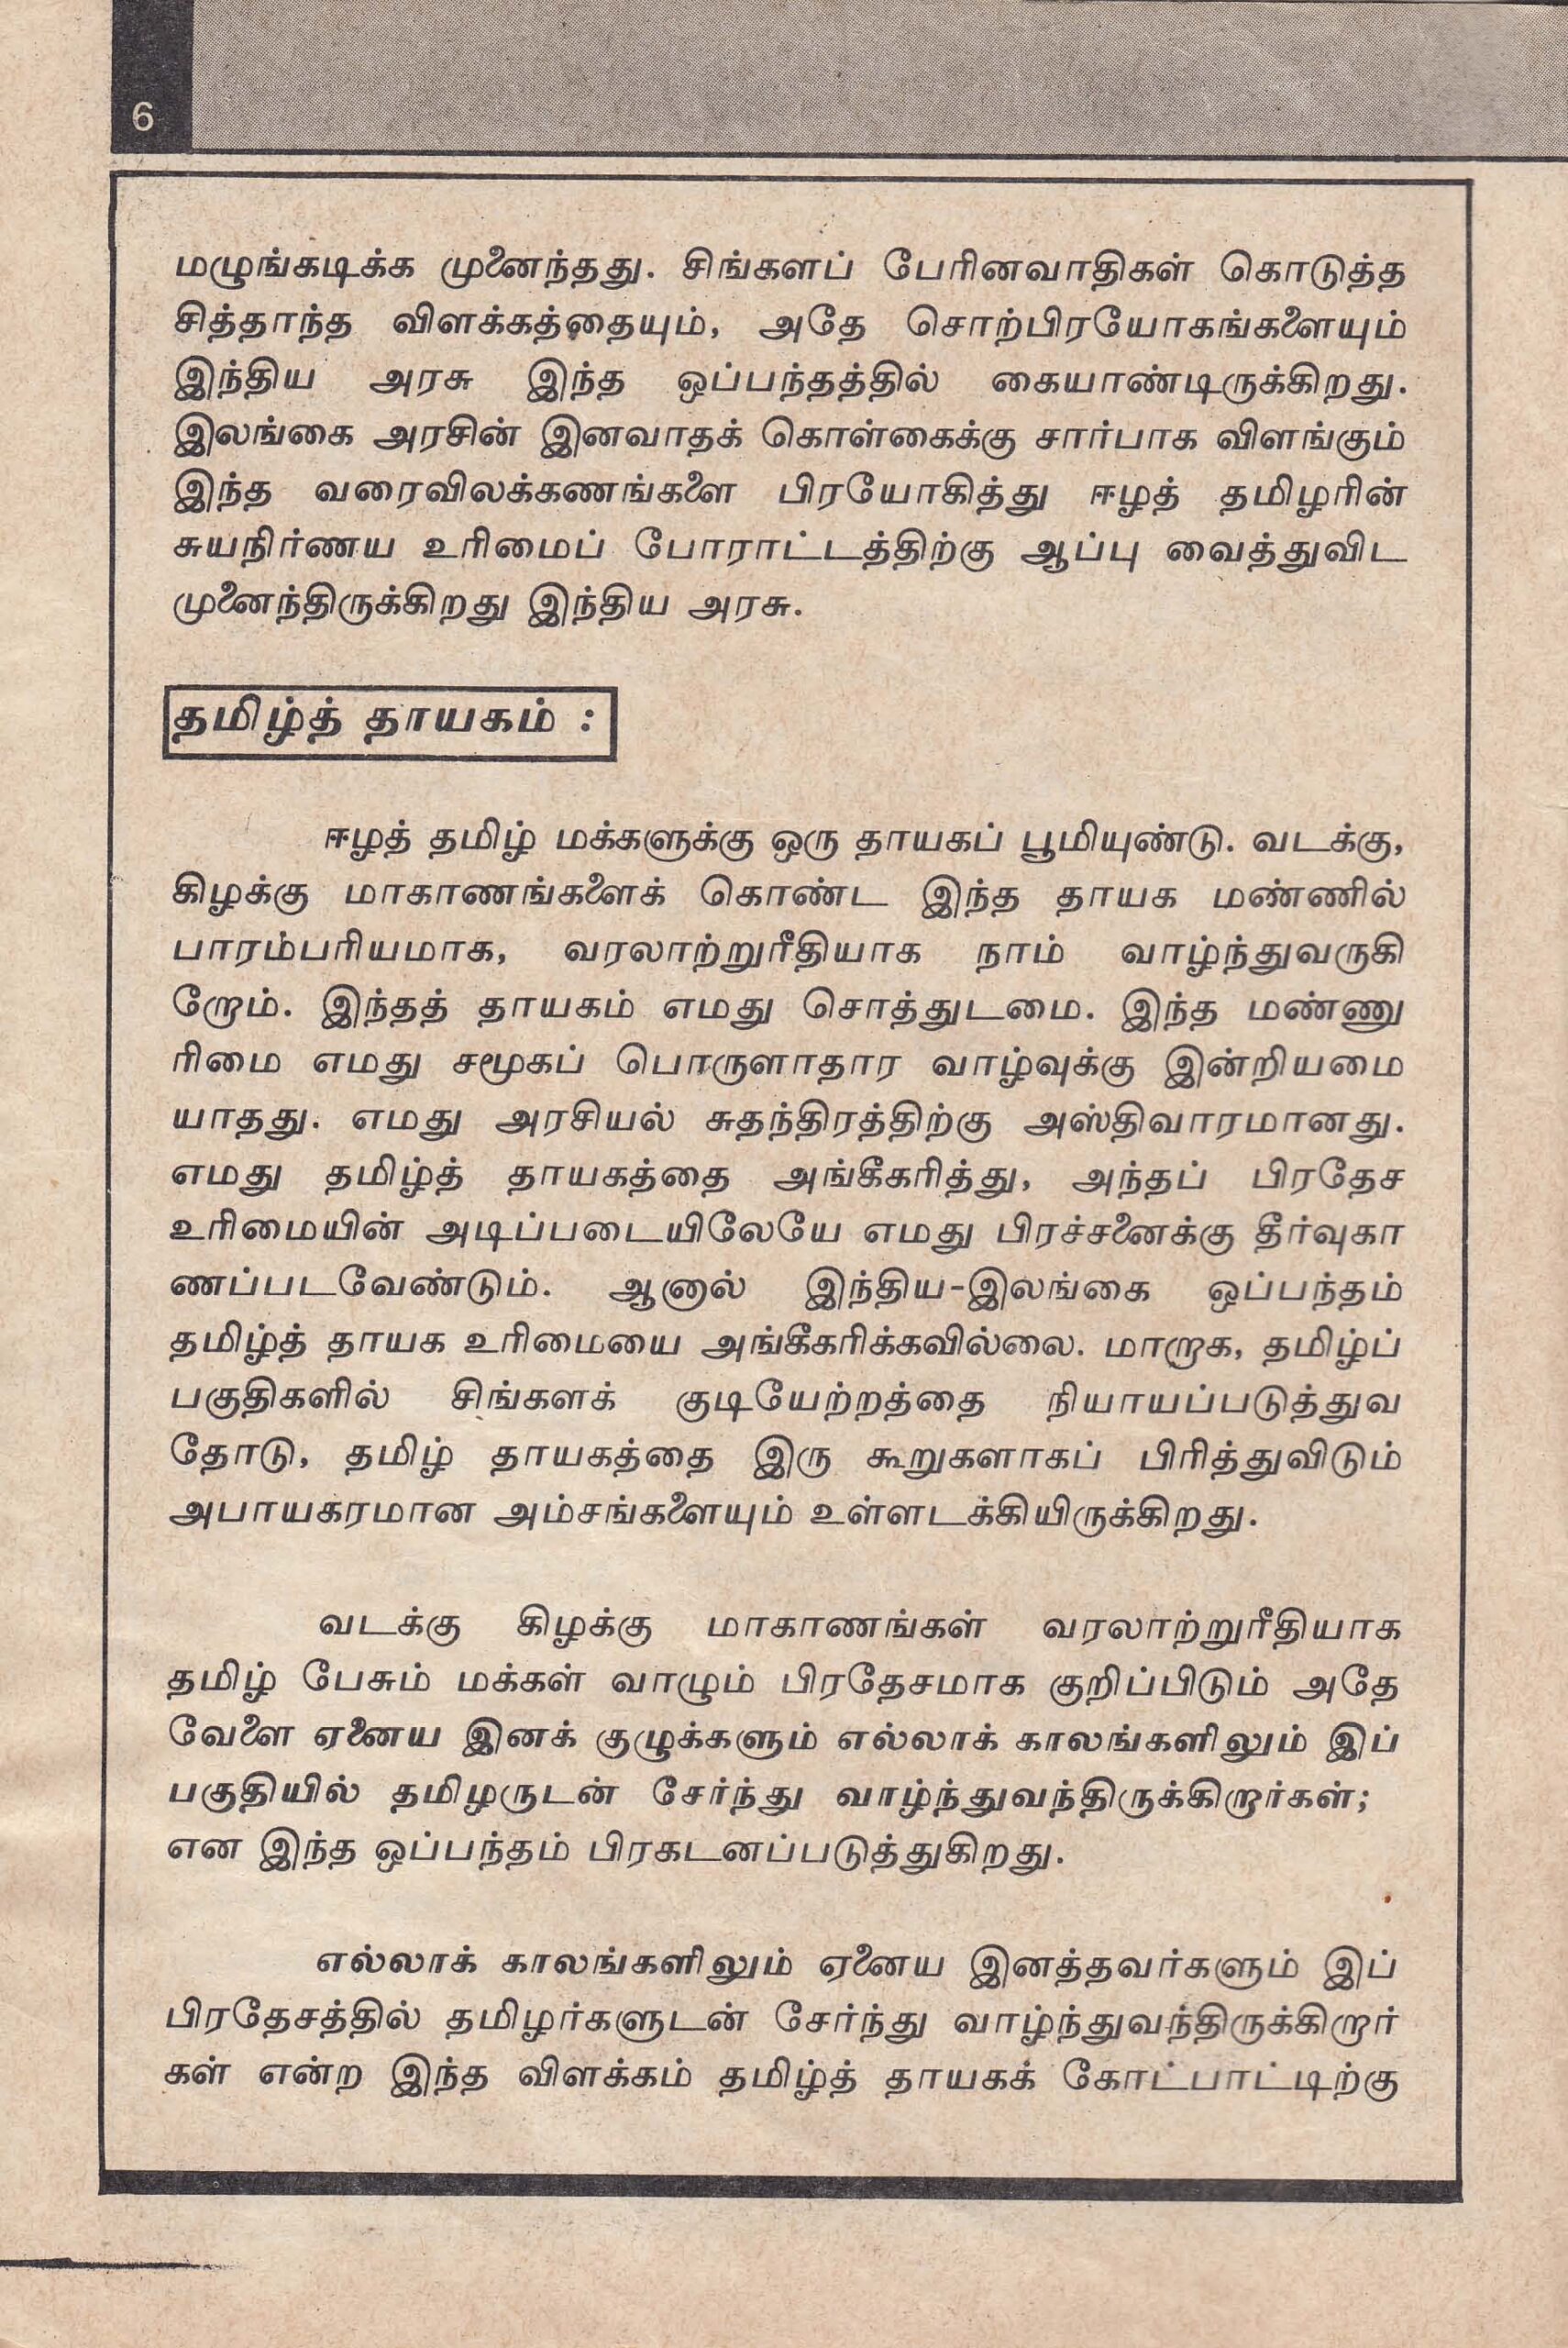 6
மழுங்கடிக்க முனைந்தது. சிங்களப் பேரினவாதிகள் கொடுத்த
சித்தாந்த விளக்கத்தையும், அதே சொற்பிரயோகங்களையும்
இந்திய அரசு இந்த ஒப்பந்தத்தில் கையாண்டிருக்கிறது.
இலங்கை அரசின் இனவாதக் கொள்கைக்கு சார்பாக விளங்கும்
இந்த வரைவிலக்கணங்களை பிரயோகித்து ஈழத் தமிழரின்
சுயநிர்ணய உரிமைப் போராட்டத்திற்கு ஆப்பு வைத்துவிட
முனைந்திருக்கிறது இந்திய அரசு.
தமிழ்த் தாயகம் :
ஈழத் தமிழ் மக்களுக்கு ஒரு தாயகப் பூமியுண்டு. வடக்கு,
கிழக்கு மாகாணங்களைக் கொண்ட இந்த தாயக மண்ணில்
பாரம்பரியமாக, வரலாற்றுரீதியாக நாம் வாழ்ந்துவருகி
றோம். இந்தத் தாயகம் எமது சொத்துடமை. இந்த மண்ணு
ரிமை எமது சமூகப் பொருளாதார வாழ்வுக்கு இன்றியமை
யாதது. எமது அரசியல் சுதந்திரத்திற்கு அஸ்திவாரமானது.
எமது தமிழ்த் தாயகத்தை அங்கீகரித்து, அந்தப் பிரதேச
உரிமையின் அடிப்படையிலேயே எமது பிரச்சனைக்கு தீர்வுகா
ணப்படவேண்டும். ஆனால் இந்திய-இலங்கை ஒப்பந்தம்
தமிழ்த் தாயக உரிமையை அங்கீகரிக்கவில்லை. மாறாக, தமிழ்ப்
பகுதிகளில் சிங்களக் குடியேற்றத்தை நியாயப்படுத்துவ
தோடு, தமிழ் தாயகத்தை இரு கூறுகளாகப் பிரித்துவிடும்
அபாயகரமான அம்சங்களையும் உள்ளடக்கியிருக்கிறது.
வடக்கு கிழக்கு மாகாணங்கள் வரலாற்றுரீதியாக
தமிழ் பேசும் மக்கள் வாழும் பிரதேசமாக குறிப்பிடும் அதே
வேளை ஏனைய இனக் குழுக்களும் எல்லாக் காலங்களிலும் இப்
பகுதியில் தமிழருடன் சேர்ந்து வாழ்ந்துவந்திருக்கிறார்கள்;
என இந்த ஒப்பந்தம் பிரகடனப்படுத்துகிறது.
எல்லாக் காலங்களிலும் ஏனைய இனத்தவர்களும் இப்
பிரதேசத்தில் தமிழர்களுடன் சேர்ந்து வாழ்ந்துவந்திருக்கிறார்
கள் என்ற இந்த விளக்கம் தமிழ்த் தாயகக் கோட்பாட்டிற்கு